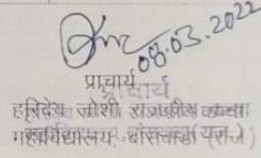 08.03.2022
प्राचार्य
हरिदेव जोशी राजकीय कन्या
महाविद्यालय, बांसवाड़ा (राज.)